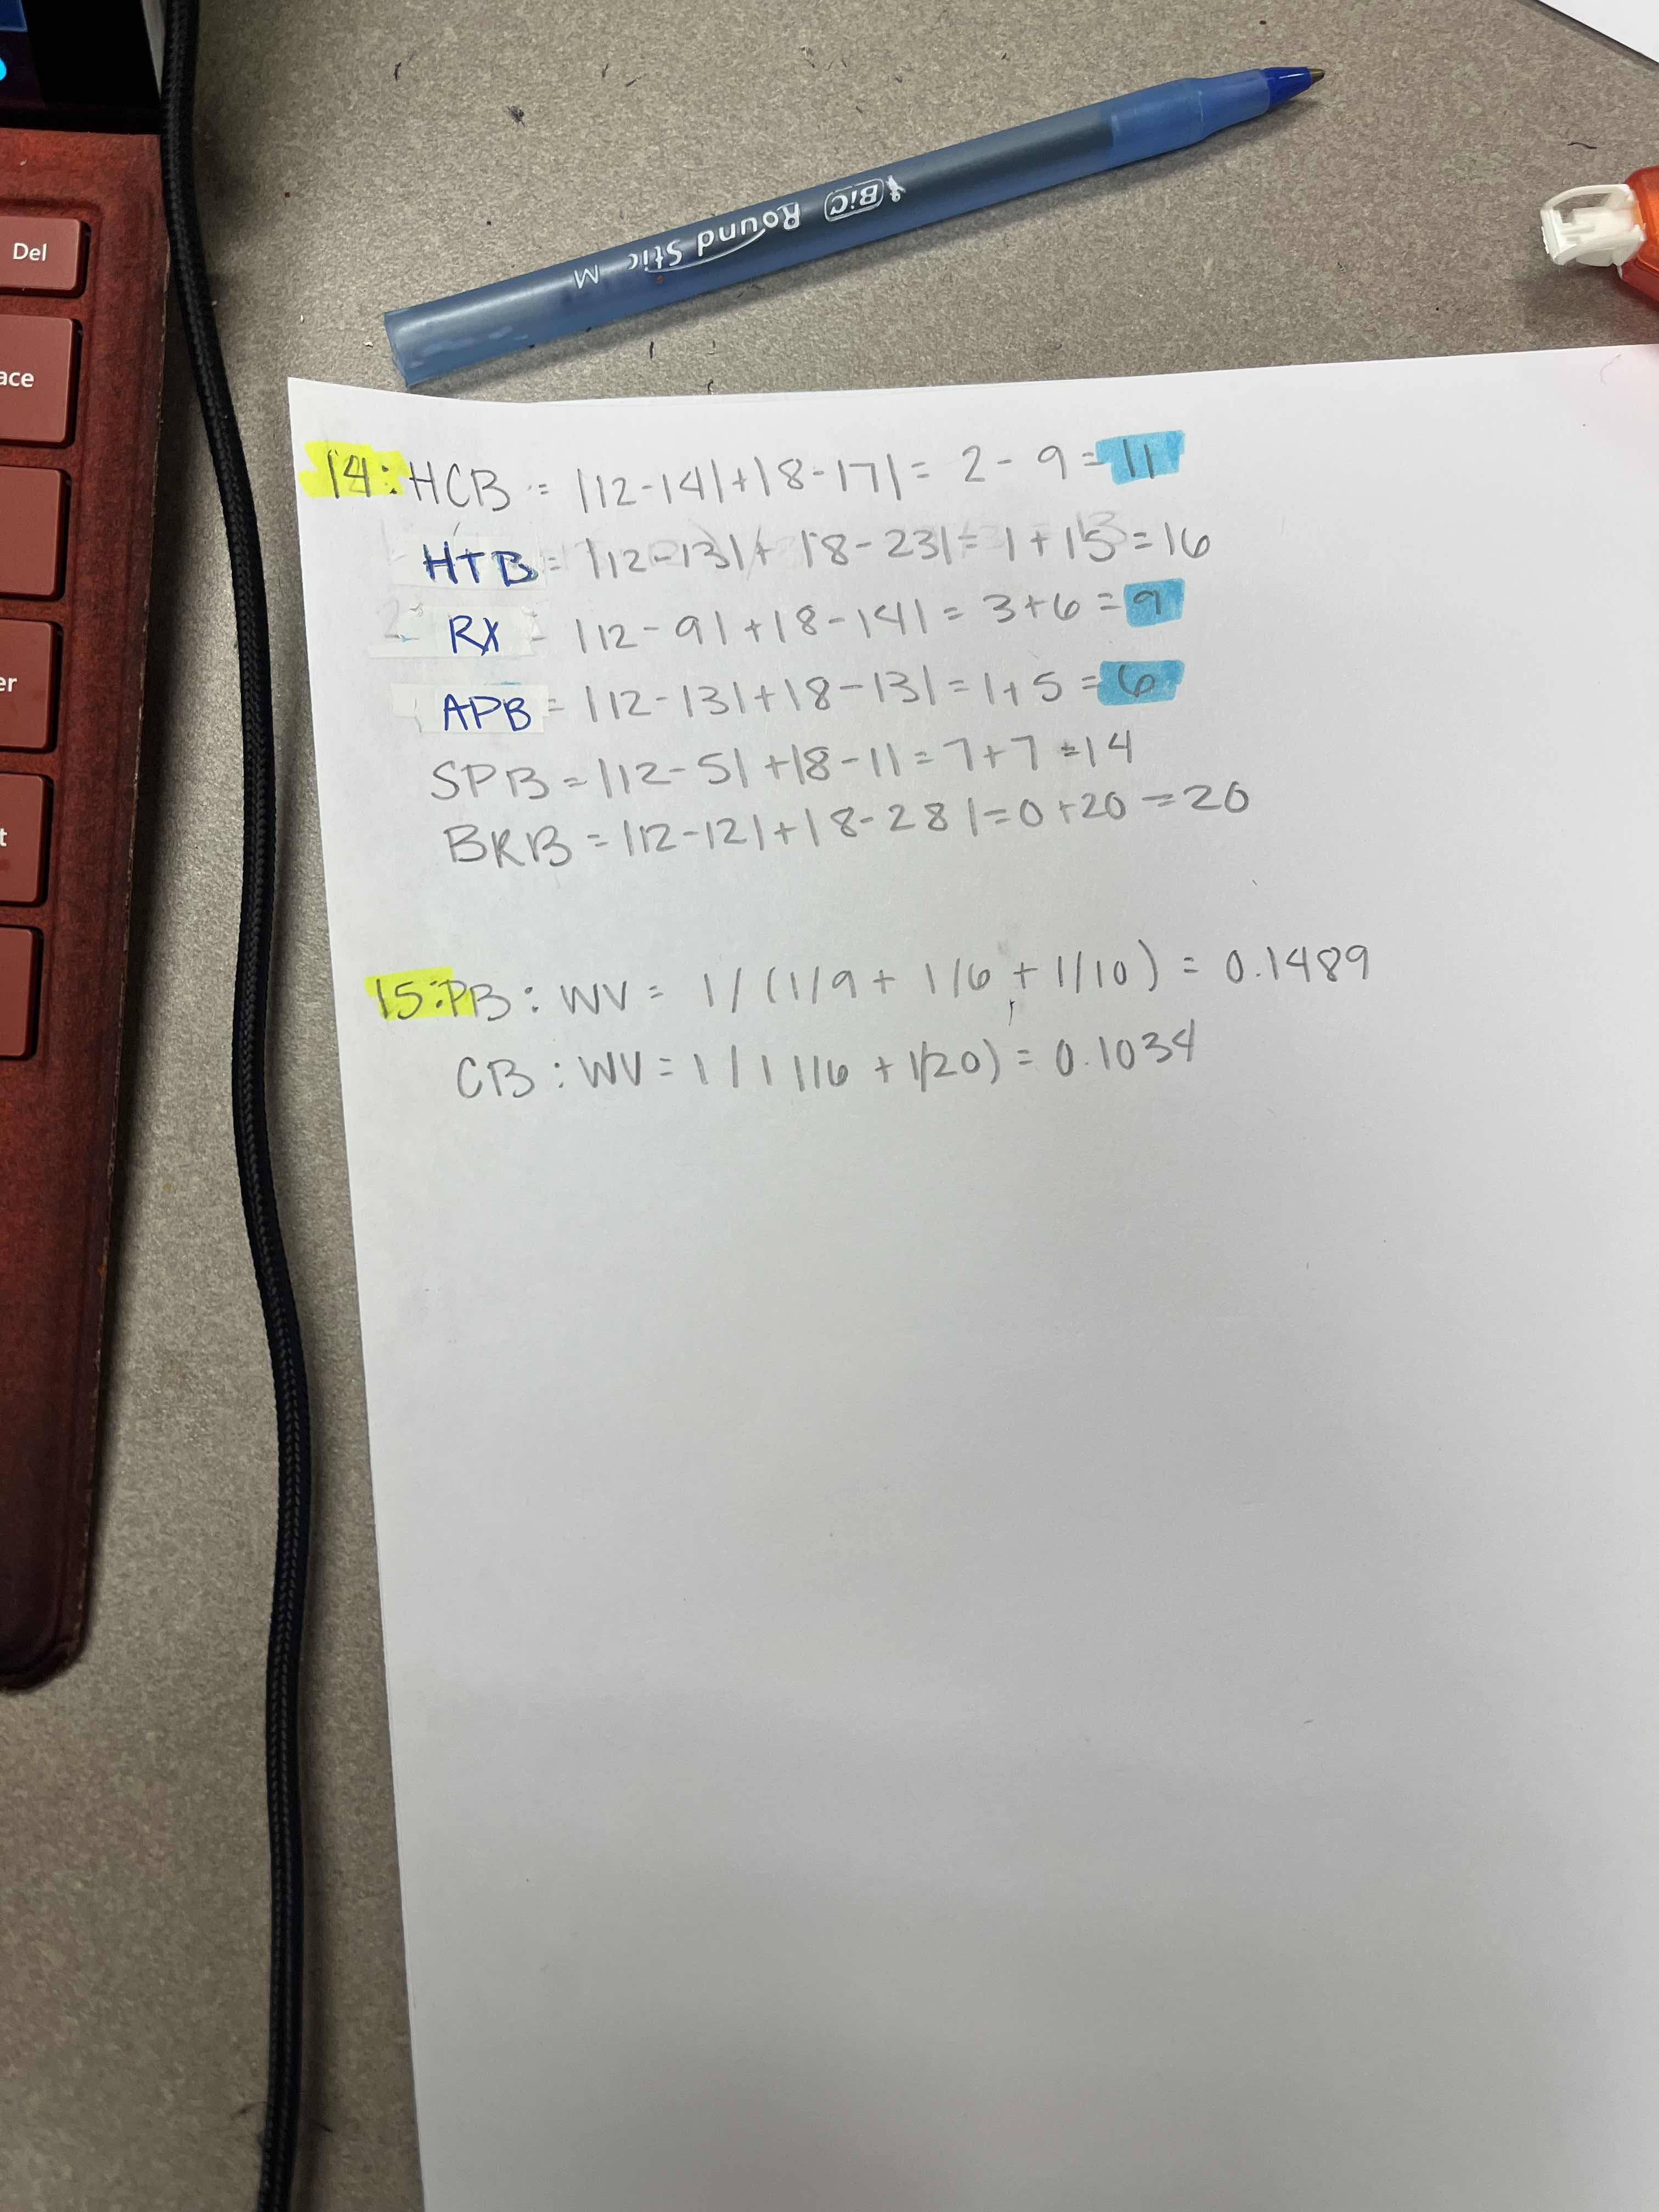 Del
ace
er
t
BiC Round Stic M
14: HCB = |12-14|+|8-17|= 2 - 9 = 11
HTB = |12-13|+ |8-23|= 1+15=16
RX = |12-9|+|8-14| = 3+6 = 9
APB = |12-13|+|8-13|=1+5 = 6
SPB = |12-5| +|8-1|= 7+7 =14
BRB = |12-12|+|8-28|=0+20 =20
15: PB : WV = 1/(1/9 + 1/6 + 1/10) = 0.1489
CB : WV = 1 / 1 1/6 + 1/20) = 0.1034